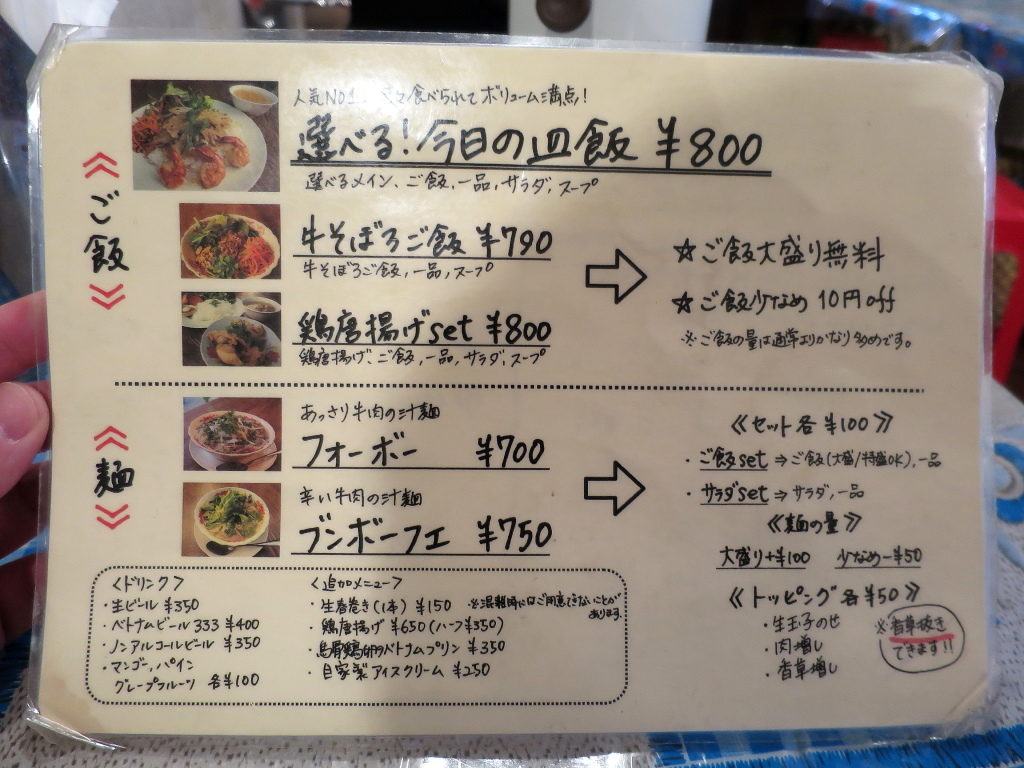 人気NO1、 食べられてボリューム満点!
選べる!今日の皿飯 ¥800
選べるメイン、ご飯、一品、サラダ、スープ
ご飯
牛そぼろご飯 ¥790
牛そぼろご飯、一品、スープ
鶏唐揚げset ¥800
鶏唐揚げ、ご飯、一品、サラダ、スープ
☆ご飯大盛り無料
☆ご飯少なめ 10円off
※ご飯の量は通常よりかなり多めです。
麺
あっさり牛肉の汁麺
フォーボー ¥700
辛い牛肉の汁麺
ブンボーフエ ¥750
《セット各¥100》
・ご飯set ⇒ご飯(大盛/特盛OK)、一品
・サラダset ⇒サラダ、一品
《麺の量》
大盛り+¥100 少なめ-¥50
《トッピング各¥50》
・生玉子のせ
・肉増し
・香草増し
※香草抜き
できます!!
〈ドリンク〉
・生ビール ¥350
・ベトナムビール333 ¥400
・ノンアルコールビール ¥350
・マンゴー、パイン
グレープフルーツ 各¥100
〈追加メニュー〉
・生春巻き(1本) ¥150 ※混雑時にはご用意できないことが
あります。
・鶏唐揚げ ¥650(ハーフ¥350)
・烏骨鶏卵のベトナムプリン ¥350
・自家製アイスクリーム ¥250